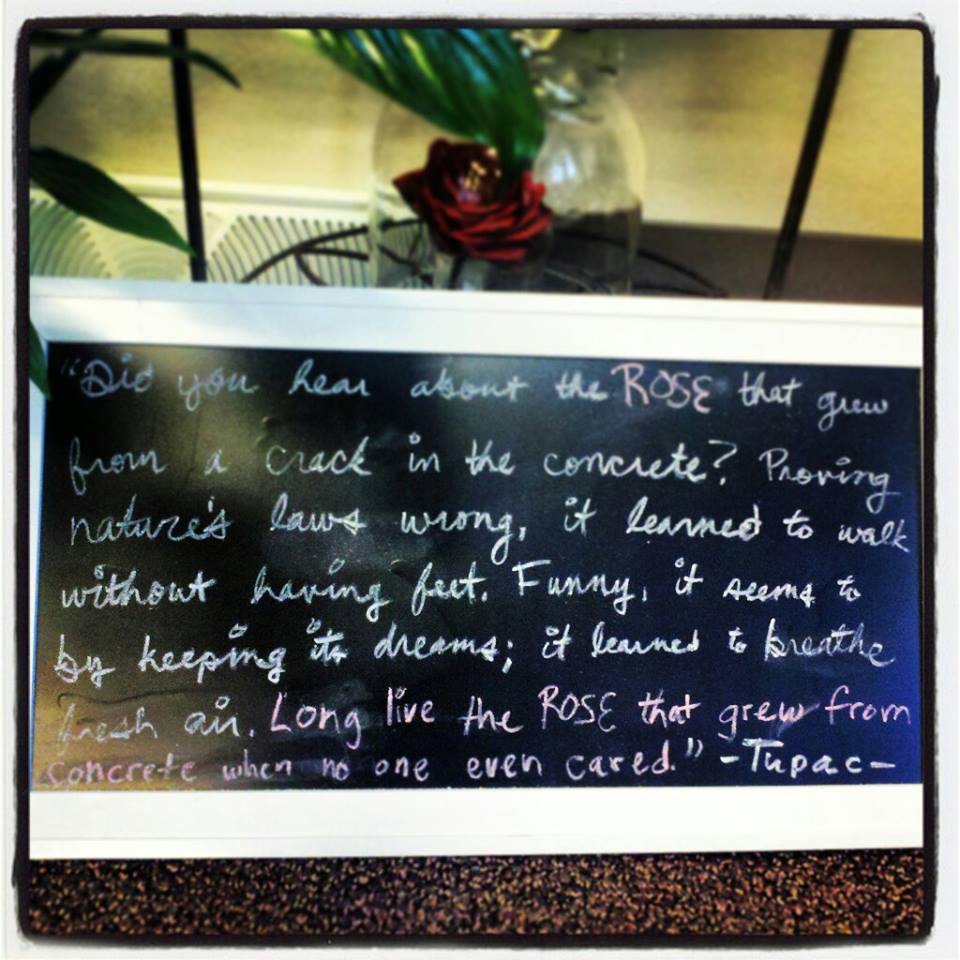 "Did you hear about the ROSE that grew
from a crack in the concrete? Proving
nature's laws wrong, it learned to walk
without having feet. Funny, it seems to
by keeping its dreams; it learned to breathe
fresh air. Long live the ROSE that grew from
concrete when no one even cared." -Tupac-